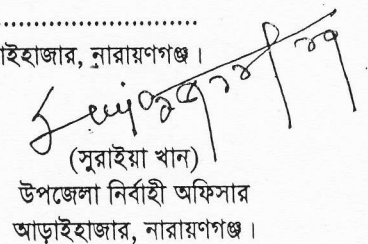 ......................................
ইহাজার, নারায়ণগঞ্জ।
(সুরাইয়া খান)
উপজেলা নির্বাহী অফিসার
আড়াইহাজার, নারায়ণগঞ্জ।